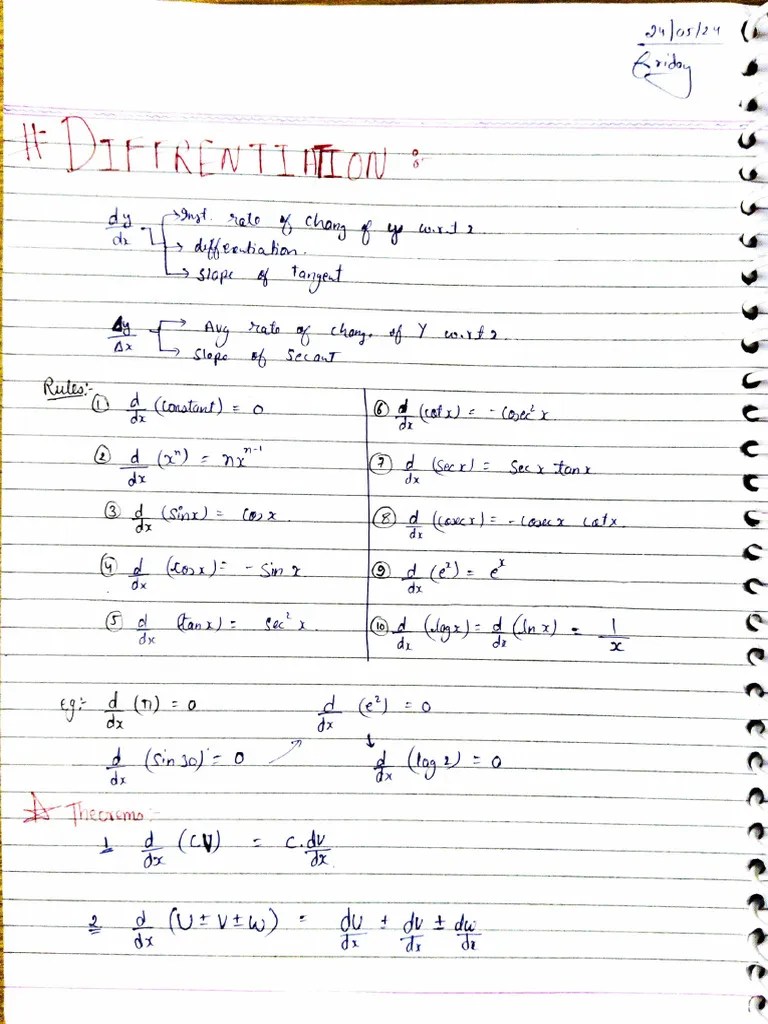 24/05/24
Friday
# DIFFRENTIATION :-
dy/dx → Inst. rate of chang of y w.r.t x
→ differentiation.
→ slope of tangent
Δy/Δx → Avg rate of chang. of Y w.r.t x.
→ slope of secant
Rules:-
① d/dx (constant) = 0
② d/dx (xⁿ) = nxⁿ⁻¹
③ d/dx (sinx) = cosx.
④ d/dx (cosx) = - sinx
⑤ d/dx (tanx) = sec²x.
⑥ d/dx (cotx) = - cosec²x.
⑦ d/dx (secx) = secx tanx
⑧ d/dx (cosecx) = - cosecx cotx.
⑨ d/dx (eˣ) = eˣ
⑩ d/dx (logx) = d/dx (lnx) = 1/x
Eg:- d/dx (π) = 0 d/dx (e²) = 0
d/dx (sin30)° = 0 d/dx (log2) = 0
☆ Theorems:-
1 d/dx (CV) = C.dV/dx.
2 d/dx (U ± V ± W) = dU/dx ± dV/dx ± dw/dx